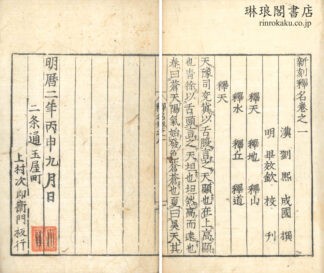 琳琅閣書店
rinrokaku.co.jp
新刻釋名卷之一
漢 劉熙 成國 撰
明 畢效欽 校 刊
釋天 釋地 釋山
釋水 釋丘 釋道
釋天
天豫司兗冀以舌腹言之天顯也在上高顯
也青徐以舌頭言之天坦也坦然高而遠也
春曰蒼天陽氣始發色蒼蒼也夏曰昊天其
明曆二年丙申九月日
二条通玉屋町
上村次郎衛門板行